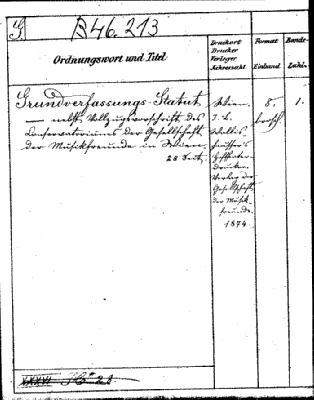 B46.213
Ordnungswort und Titel
Druckort
Drucker
Verleger
Jahreszahl
Format
Einband
Bände-
Zahl.
Grundverfassungs-Statut
— nebst Vollzugsvorschrift des
Conservatoriums der Gesellschaft
der Musikfreunde in Wien.
28 Seit.
Wien.
J. B.
Wallis-
hausser's
Verlag der
Gesellschaft
der Musik-
freunde.
1874.
8.
brosch.
1.
XXXVI